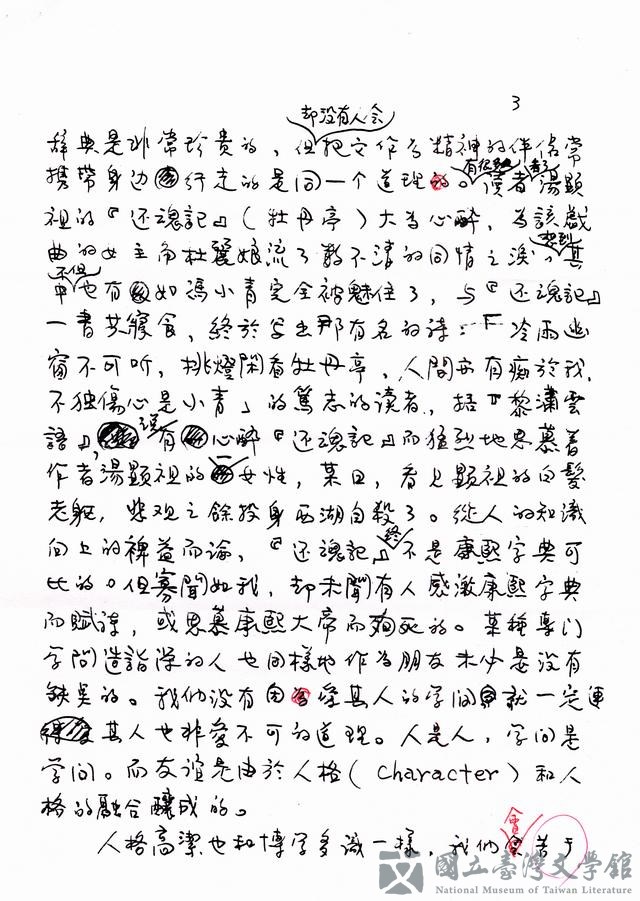 3
却没有人会
辞典是非常珍贵的，但把它作为精神的伴侣常
携带身边行走的是同一个道理。有很多读者看了湯顯
祖的『还魂記』（牡丹亭）大为心醉，為該戲
曲的女主角杜麗娘流了数不清的同情之淚。想到其
中不但也有如馮小青完全被魅住了，与『还魂記』
一書共寢食，終於写出那有名的詩：「冷雨幽
窗不可听，挑燈閑看牡丹亭，人間亦有痴於我，
不独傷心是小青」的篤志的读者，据『黎瀟雲
語』，说有心醉『还魂記』而猛烈地思慕着
作者湯顯祖的女性，某日，看見顯祖的白髮
老躯，悲观之餘投身西湖自殺了。從人的知識
向上的裨益而論，『还魂記』終不是康熙字典可
比的。但寡聞如我，却未聞有人感激康熙字典
而賦詩，或思慕康熙大帝而殉死的。某種專门
学問造詣深的人也同樣地作為朋友未必是没有
缺点的。我们没有因為愛某人的学问就一定連
某人也非爱不可的道理。人是人，学问是
学问。而友谊是由於人格（character）和人
格的融合釀成的。
人格高潔也和博学多識一樣，我们會苦于
國立臺灣文學館
National Museum of Taiwan Literature